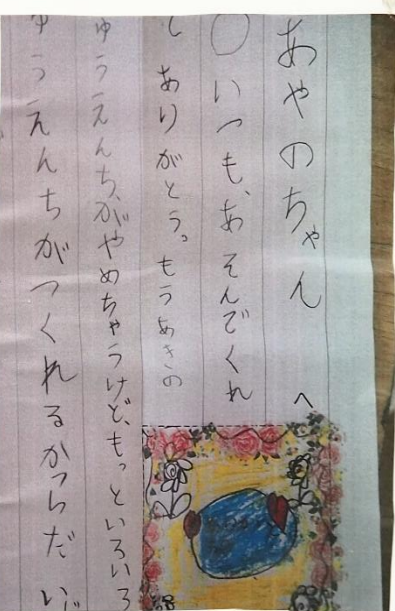 あやのちゃんへ
○いつも、あそんでくれ
てありがとう。もうあきの
ゆうえんちがやめちゃうけど、もっといろいろ
ゆうえんちがつくれるかつらだ